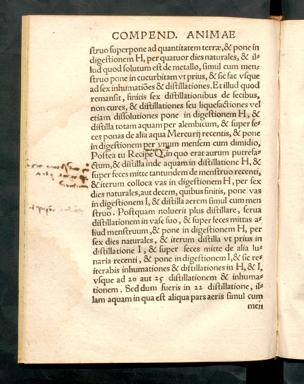 COMPEND. ANIMAE
struo superpone ad quantitatem terræ, & pone in
digestionem H, per quatuor dies naturales, & il-
lud quod solutum est de metallo, simul cum men-
struo pone in cucurbitam vt prius, & sic fac vsque
ad sex inhumatiões & distillationes. Et illud quod
remansit, finitis sex distillationibus de fecibus,
non cures, & distillationes seu liquefactiones vel
etiam dissolutiones pone in digestionem H, &
distilla totam aquam per alembicum, & super fe-
ces ponas de alia aqua Mercurij recentis, & pone
in digestionem per vnum mensem cum dimidio,
Postea tu Recipe Q in quo erat aurum putrefa-
ctum, & distilla inde aquam in distillatione H, &
super feces mitte tantundem de menstruo recenti,
& iterum colloca vas in digestionem H, per sex
dies naturales, aut decem, quibus finitis, pone vas
in digestionem I, & distilla aerem simul cum men
struo. Postquam nolueris plus distillare, serua
distillationem in vase suo, & super feces mittas a-
liud menstruum, & pone in digestionem H, per
sex dies naturales, & iterum distilla vt prius in
distillatione I, & super feces mitte de alia lu-
naria recenti, & pone in digestionem I, & sic re-
iterabis inhumationes & distillationes in H, & I,
vsque ad 20 aut 25 distillationem & inhuma-
tionem. Sed dum fueris in 22 distillatione, il-
lam aquam in qua est aliqua pars aeris simul cum
men